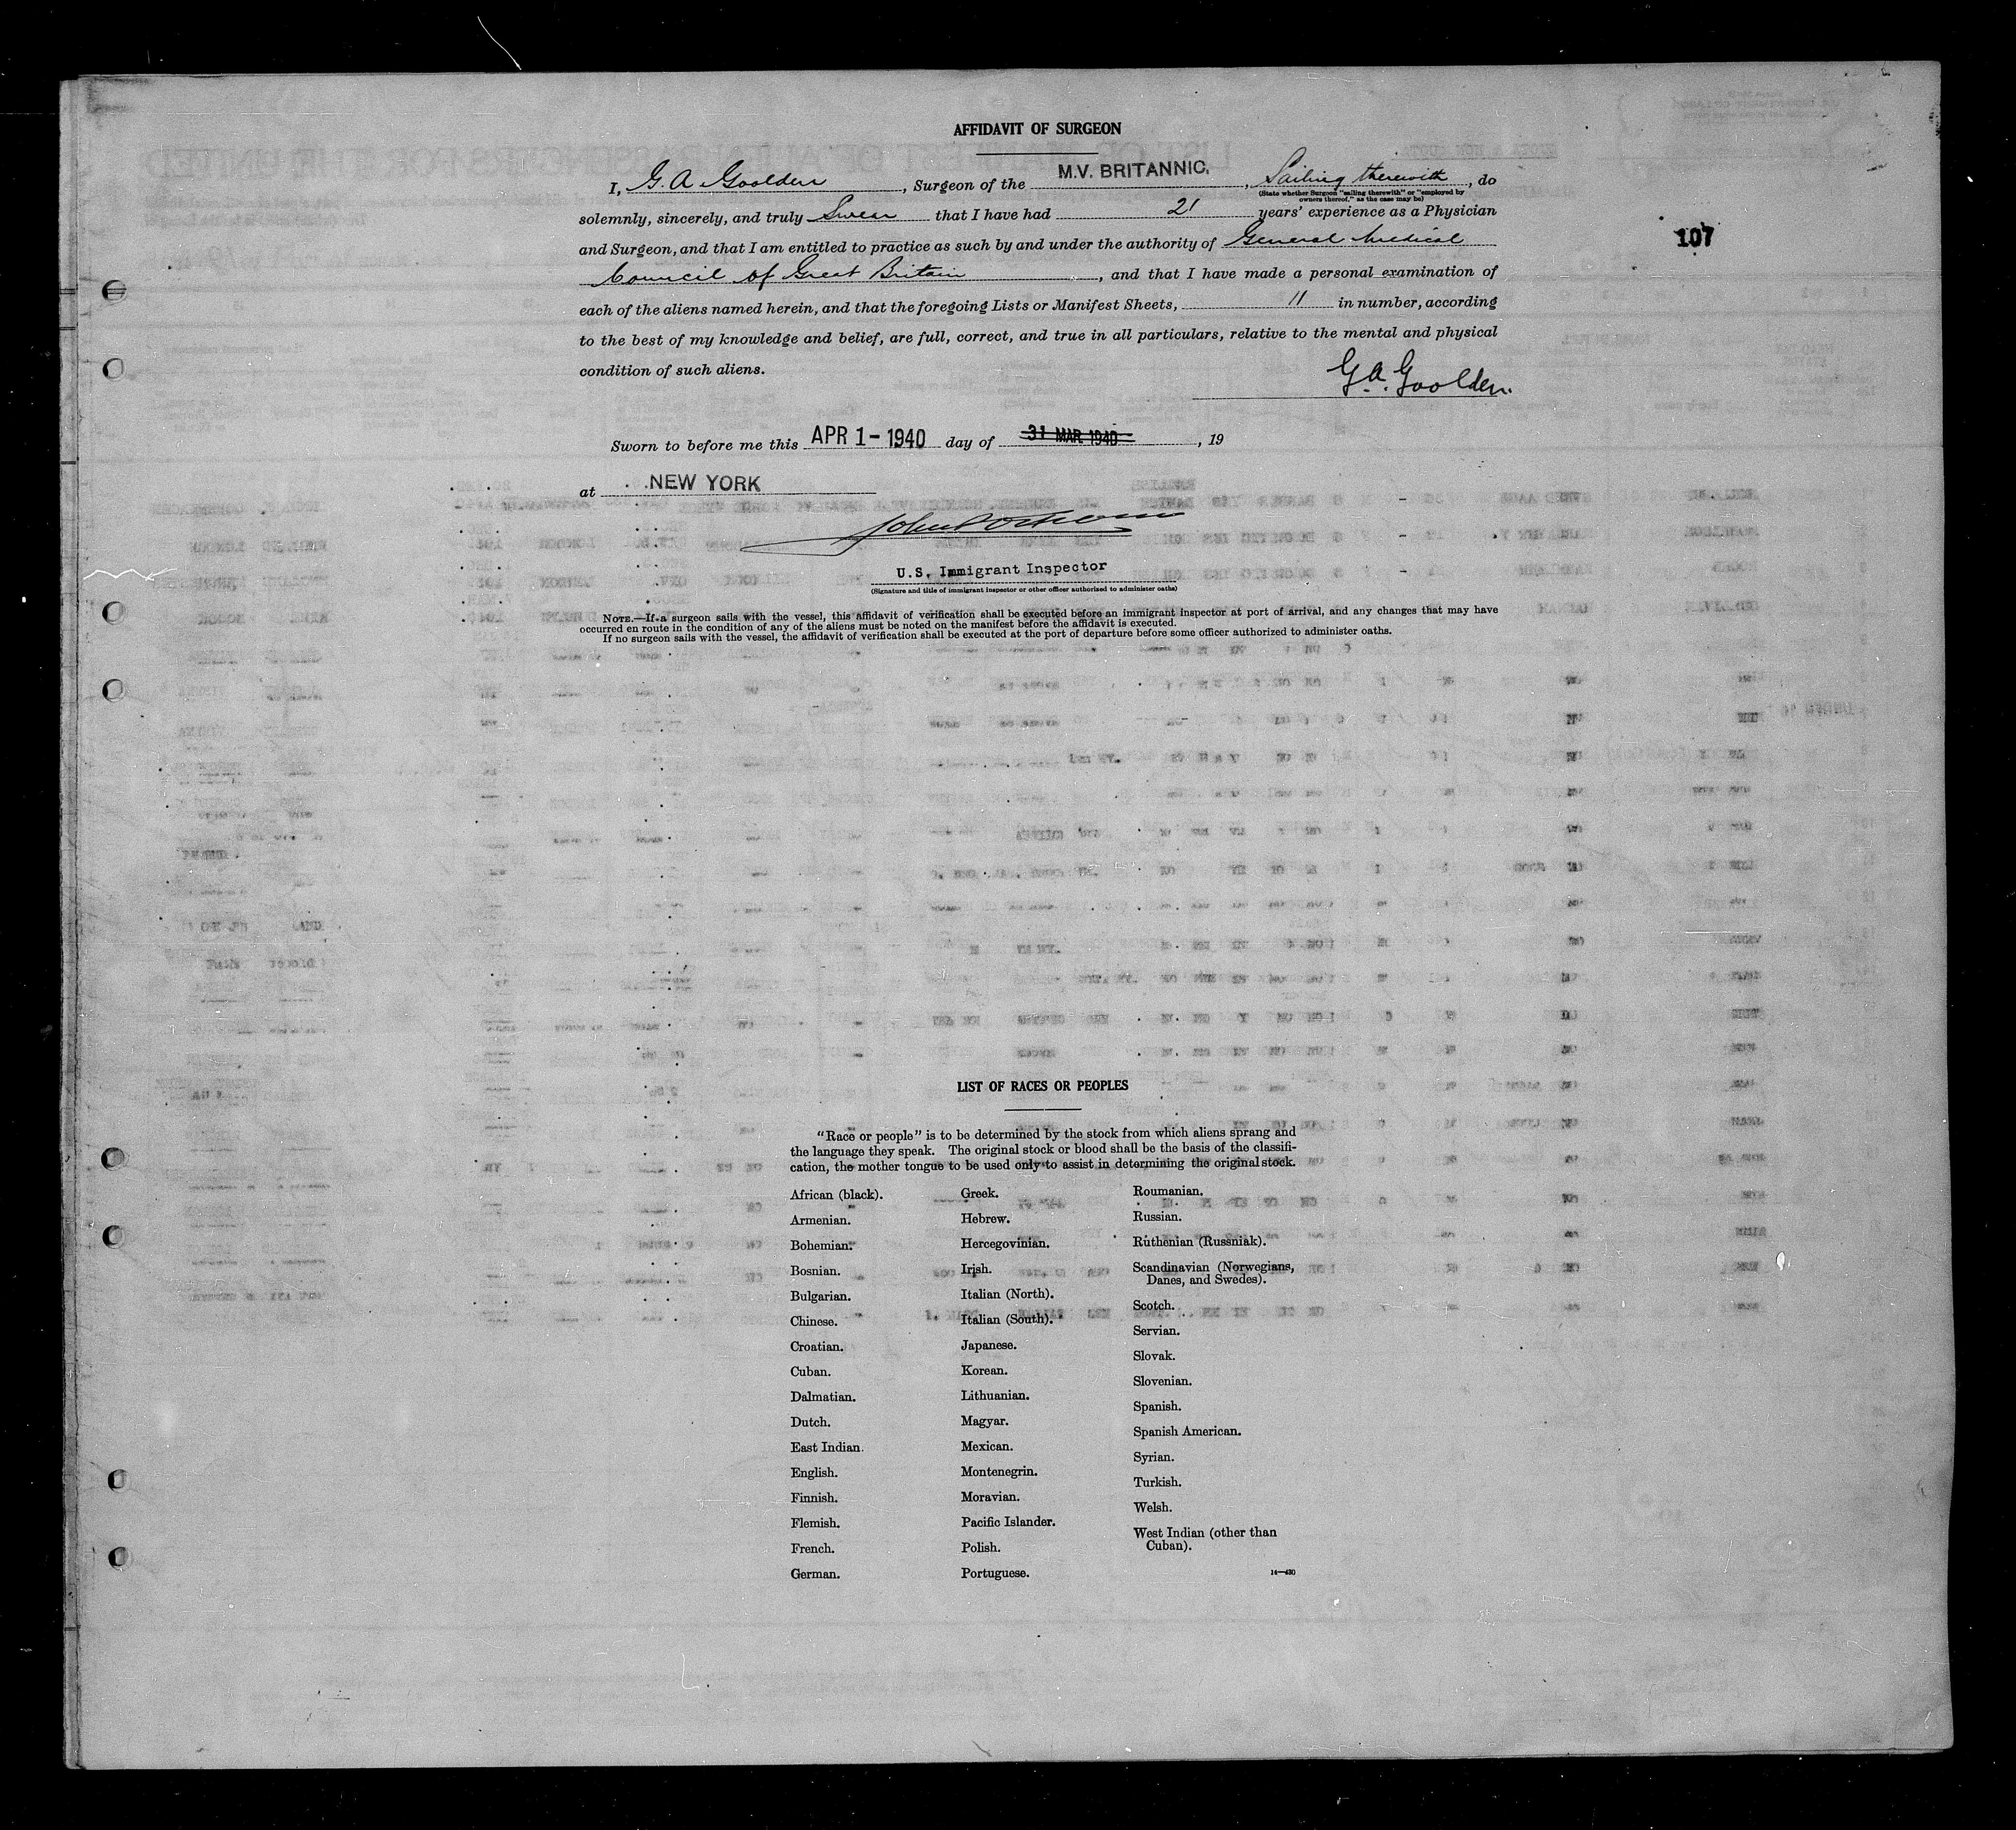 AFFIDAVIT OF SURGEON
I, G. A. Goolden, Surgeon of the M.V. BRITANNIC, Sailing therewith, do
(State whether Surgeon "sailing therewith" or "employed by
owners thereof," as the case may be)
solemnly, sincerely, and truly Swear that I have had 21 years' experience as a Physician
and Surgeon, and that I am entitled to practice as such by and under the authority of General Medical
Council of Great Britain, and that I have made a personal examination of
each of the aliens named herein, and that the foregoing Lists or Manifest Sheets, 11 in number, according
to the best of my knowledge and belief, are full, correct, and true in all particulars, relative to the mental and physical
condition of such aliens.
G. A. Goolden.
107
Sworn to before me this APR 1-1940 day of 31 MAR 1940, 19
at NEW YORK
U.S. Immigrant Inspector
(Signature and title of immigrant inspector or other officer authorized to administer oaths)
NOTE.—If a surgeon sails with the vessel, this affidavit of verification shall be executed before an immigrant inspector at port of arrival, and any changes that may have
occurred en route in the condition of any of the aliens must be noted on the manifest before the affidavit is executed.
If no surgeon sails with the vessel, the affidavit of verification shall be executed at the port of departure before some officer authorized to administer oaths.
LIST OF RACES OR PEOPLES
"Race or people" is to be determined by the stock from which aliens sprang and
the language they speak. The original stock or blood shall be the basis of the classifi-
cation, the mother tongue to be used only to assist in determining the original stock.
African (black).
Armenian.
Bohemian.
Bosnian.
Bulgarian.
Chinese.
Croatian.
Cuban.
Dalmatian.
Dutch.
East Indian.
English.
Finnish.
Flemish.
French.
German.
Greek.
Hebrew.
Hercegovinian.
Irish.
Italian (North).
Italian (South).
Japanese.
Korean.
Lithuanian.
Magyar.
Mexican.
Montenegrin.
Moravian.
Pacific Islander.
Polish.
Portuguese.
Roumanian.
Russian.
Ruthenian (Russniak).
Scandinavian (Norwegians,
Danes, and Swedes).
Scotch.
Servian.
Slovak.
Slovenian.
Spanish.
Spanish American.
Syrian.
Turkish.
Welsh.
West Indian (other than
Cuban).
14—430